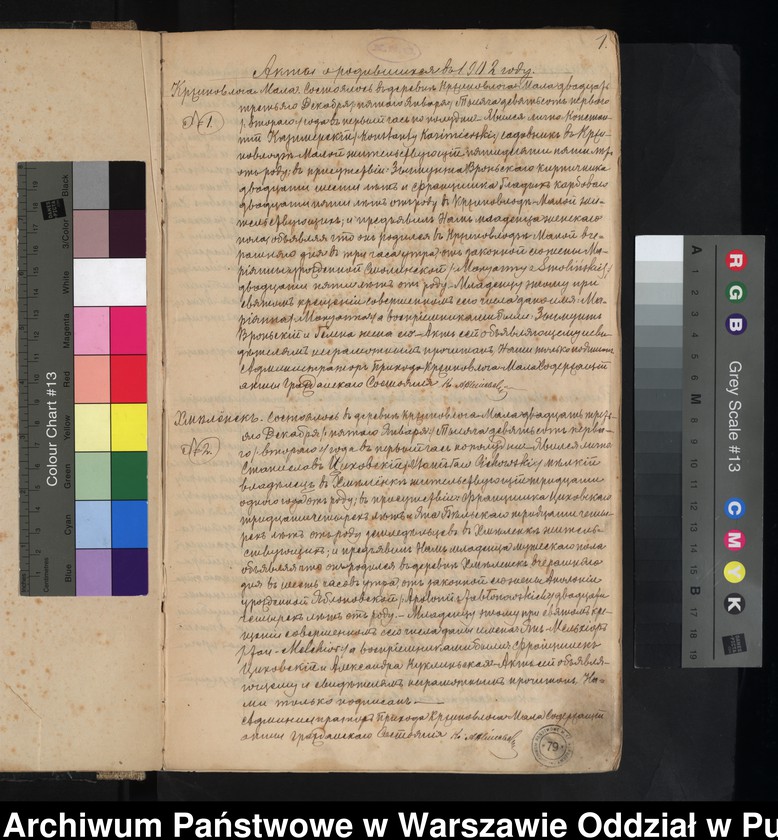 1.
Акты о родившихся въ 1902 году.
Крживовлога Мала. Состоялось въ деревнѣ Крживовлога-Мала двадцать
третьяго Декабря / пятаго Января / тысяча девятьсотъ перваго
№ 1.
/ втораго / года въ первый часъ по полудни. Явился лично Констан-
тій Казимерскій / Konstanty Kazimierski / садовникъ въ Кржи-
вовлодзѣ Малой жительствующій, пятидесяти пяти лѣтъ
отъ роду; въ присутствіи Зыгмунта Вроньскаго кирпичника
двадцати шести лѣтъ и Франца
двадцати пяти лѣтъ отъ роду въ Крживовлодзѣ-Малой жи-
тельствующихъ; и предъявилъ Намъ младенца женскаго
пола, объявляя что онъ родился въ Крживовлодзѣ Малой вче-
рашняго дня въ три часа утра, отъ законной его жены Ма-
ріянны урожденной Смолинской / Maryanny z Smolińskich /
двадцати пяти лѣтъ отъ роду. Младенцу этому при
святомъ крещеніи совершенномъ сего числа дано имя: Ма-
ріянна / Maryanna / а воспріемниками были: Зыгмунтъ
Вроньскій и Гелена жена его. Актъ сей объявляющему и сви-
дѣтелямъ неграмотнымъ прочитанъ, Нами только подписанъ.
Администраторъ Прихода Крживовлога-Мала Содержащій
акты Гражданскаго Состоянія
Хмѣлёнекъ. Состоялось въ деревнѣ Крживовлога-Мала двадцать треть-
яго Декабря / пятаго Января / тысяча девятьсотъ перва-
№ 2.
го / втораго / года въ первый часъ по полудни. Явился лично
Станиславъ Циховскій / Cichowski / мѣлкій
владѣлецъ въ Хмѣленкѣ жительствующій тридцати
одного года отъ роду; въ присутствіи Францишка Циховскаго
тридцати четырехъ лѣтъ и Яна Бѣльскаго тридцати четы-
рехъ лѣтъ отъ роду земледѣльцевъ въ Хмѣленкѣ житель-
ствующихъ; и предъявилъ Намъ младенца мужескаго пола
объявляя что онъ родился въ деревнѣ Хмѣленкѣ вчерашняго
дня въ шесть часовъ утра, отъ законной его жены Аполоніи
урожденной Яблоновской / Apolonii z Jabłonowskich / двадцати
четырехъ лѣтъ отъ роду. Младенцу этому при святомъ кре-
щеніи совершенномъ сего числа даны имена: Янъ Мельхіоръ
/ Jan - Melchior / а воспріемниками были: Францишекъ
Циховскій и Александра Актъ сей объявля-
ющему и свидѣтелямъ неграмотнымъ прочитанъ, На-
ми только подписанъ.
Администраторъ Прихода Крживовлога-Мала Содержащій
акты Гражданскаго Состоянія
79
Colour Chart #13
Blue Cyan Green Yellow Red Magenta White 3/Color Black
Centimetres
Grey Scale #13
R G B C M Y K
A 1 2 3 4 5 6 M 8 9 10 11 12 13 14 15 B 17 18 19
Archiwum Państwowe w Warszawie Oddział w Pu